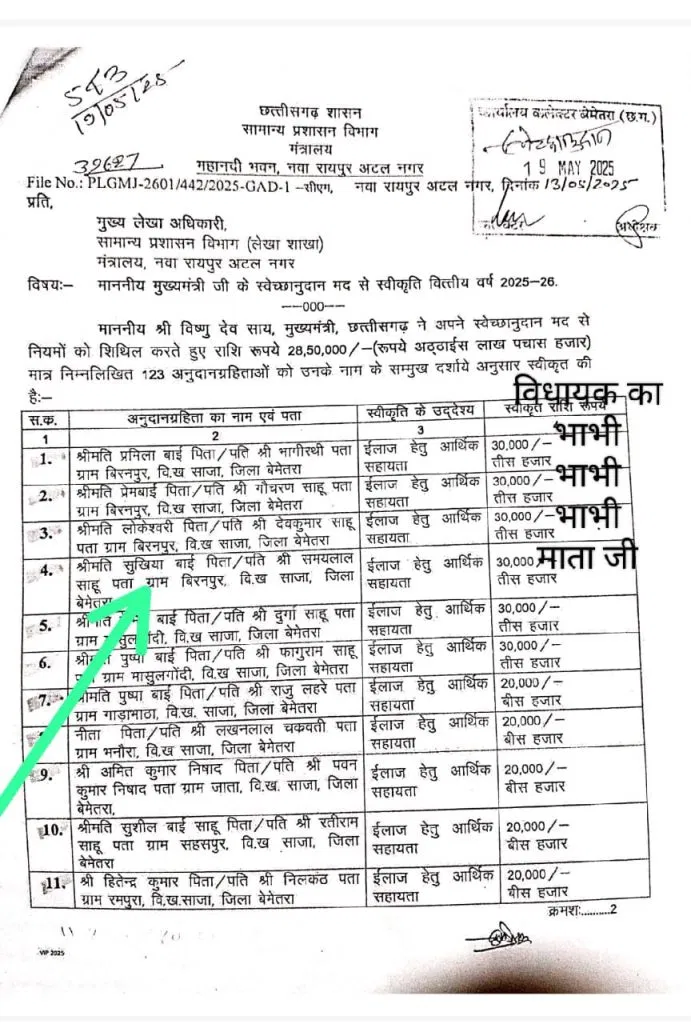 543
19/05/25
छत्तीसगढ़ शासन
सामान्य प्रशासन विभाग
मंत्रालय
महानदी भवन, नवा रायपुर अटल नगर
कार्यालय कलेक्टर बेमेतरा (छ.ग.)
19 MAY 2025
File No.: PLGMJ-2601/442/2025-GAD-1 –सीएम, नवा रायपुर अटल नगर, दिनांक 13/05/2025
प्रति,
मुख्य लेखा अधिकारी,
सामान्य प्रशासन विभाग (लेखा शाखा)
मंत्रालय, नवा रायपुर अटल नगर
विषयः– माननीय मुख्यमंत्री जी के स्वेच्छानुदान मद से स्वीकृति वित्तीय वर्ष 2025–26.
––000––
माननीय श्री विष्णु देव साय, मुख्यमंत्री, छत्तीसगढ़ ने अपने स्वेच्छानुदान मद से
नियमों को शिथिल करते हुए राशि रूपये 28,50,000/–(रूपये अठ्ठाईस लाख पचास हजार)
मात्र निम्नलिखित 123 अनुदानग्रहिताओं को उनके नाम के सम्मुख दर्शाये अनुसार स्वीकृत की
है:–
विधायक का
स.क. अनुदानग्रहिता का नाम एवं पता स्वीकृति के उद्देश्य स्वीकृत राशि रूपये
1 2 3
1. श्रीमति प्रनिला बाई पिता/पति श्री भागीरथी पता ईलाज हेतु आर्थिक 30,000/– भाभी
ग्राम बिरनपुर, वि.ख साजा, जिला बेमेतरा सहायता तीस हजार
2. श्रीमति प्रेमबाई पिता/पति श्री गौचरण साहू पता ईलाज हेतु आर्थिक 30,000/– भाभी
ग्राम बिरनपुर, वि.ख साजा, जिला बेमेतरा सहायता तीस हजार
3. श्रीमति लोकेश्वरी पिता/पति श्री देवकुमार साहू ईलाज हेतु आर्थिक 30,000/– भाभी
पता ग्राम बिरनपुर, वि.ख साजा, जिला बेमेतरा सहायता तीस हजार
4. श्रीमति सुखिया बाई पिता/पति श्री समयलाल ईलाज हेतु आर्थिक 30,000/– माता जी
साहू पता ग्राम बिरनपुर, वि.ख साजा, जिला सहायता तीस हजार
बेमेतरा
5. बाई पिता/पति श्री दुर्गा साहू पता ईलाज हेतु आर्थिक 30,000/–
ग्राम वि.ख साजा, जिला बेमेतरा सहायता तीस हजार
6. श्रीमति पुष्पा बाई पिता/पति श्री फागुराम साहू ईलाज हेतु आर्थिक 30,000/–
ग्राम मासुलगोंदी, वि.ख साजा, जिला बेमेतरा सहायता तीस हजार
7. श्रीमति पुष्पा बाई पिता/पति श्री राजु लहरे पता ईलाज हेतु आर्थिक 20,000/–
ग्राम गाड़ामाठा, वि.ख. साजा, जिला बेमेतरा सहायता बीस हजार
नीता पिता/पति श्री लखनलाल चकवती पता ईलाज हेतु आर्थिक 20,000/–
ग्राम भनौरा, वि.ख साजा, जिला बेमेतरा सहायता बीस हजार
9. श्री अमित कुमार निषाद पिता/पति श्री पवन ईलाज हेतु आर्थिक 20,000/–
कुमार निषाद पता ग्राम जाता, वि.ख. साजा, जिला सहायता बीस हजार
बेमेतरा,
10. श्रीमति सुशील बाई साहू पिता/पति श्री रतीराम ईलाज हेतु आर्थिक 20,000/–
साहू पता ग्राम सहसपुर, वि.ख साजा, जिला सहायता बीस हजार
बेमेतरा
11. श्री हितेन्द्र कुमार पिता/पति श्री निलकंठ पता ईलाज हेतु आर्थिक 20,000/–
ग्राम रमपुरा, वि.ख.साजा, जिला बेमेतरा सहायता बीस हजार
क्रमशः..........2
VIP 2025